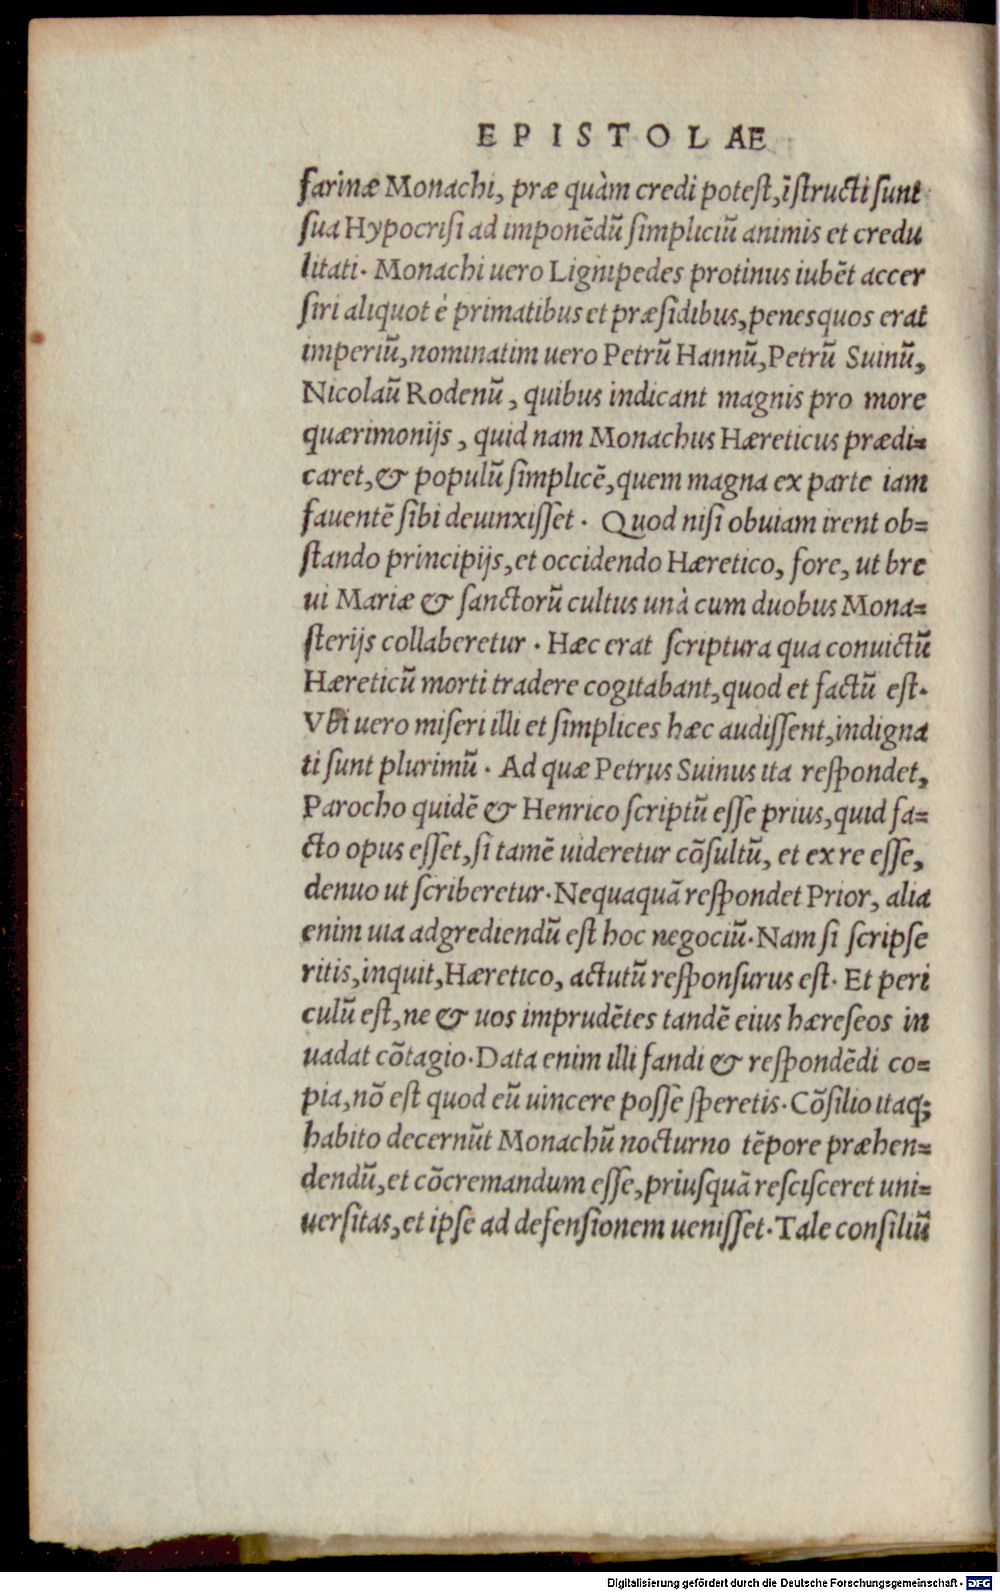 EPISTOLAE
farinæ Monachi, præ quàm credi potest, ĩstructi sunt
sua Hypocrisi ad imponẽdũ simpliciũ animis et credu
litati. Monachi uero Lignipedes protinus iubẽt accer
siri aliquot è primatibus et præsidibus, penes quos erat
imperiũ, nominatim uero Petrũ Hannũ, Petrũ Suinũ,
Nicolaũ Rodenũ, quibus indicant magnis pro more
quærimonijs, quid nam Monachus Hæreticus prædi=
caret, & populũ simplicẽ, quem magna ex parte iam
fauentẽ sibi deuinxisset. Quod nisi obuiam irent ob=
stando principijs, et occidendo Hæretico, fore, ut bre
ui Mariæ & sanctorũ cultus unà cum duobus Mona=
sterijs collaberetur. Hæc erat scriptura qua conuictũ
Hæreticũ morti tradere cogitabant, quod et factũ est.
Vbi uero miseri illi et simplices hæc audissent, indigna
ti sunt plurimũ. Ad quæ Petrus Suinus ita respondet,
Parocho quidẽ & Henrico scriptũ esse prius, quid fa=
cto opus esset, si tamẽ uideretur cõsultũ, et ex re esse,
denuo ut scriberetur. Nequaquã respondet Prior, alia
enim uia adgrediendũ est hoc negociũ. Nam si scripse
ritis, inquit, Hæretico, actutũ responsurus est. Et peri
culũ est, ne & uos imprudẽtes tandẽ eius hæreseos in
uadat cõtagio. Data enim illi fandi & respondẽdi co=
pia, nõ est quod eũ uincere posse speretis. Cõsilio itaq;
habito decernũt Monachũ nocturno tẽpore præhen=
dendũ, et cõcremandum esse, priusquã rescisceret uni=
uersitas, et ipse ad defensionem uenisset. Tale consiliũ
Digitalisierung gefördert durch die Deutsche Forschungsgemeinschaft - DFG